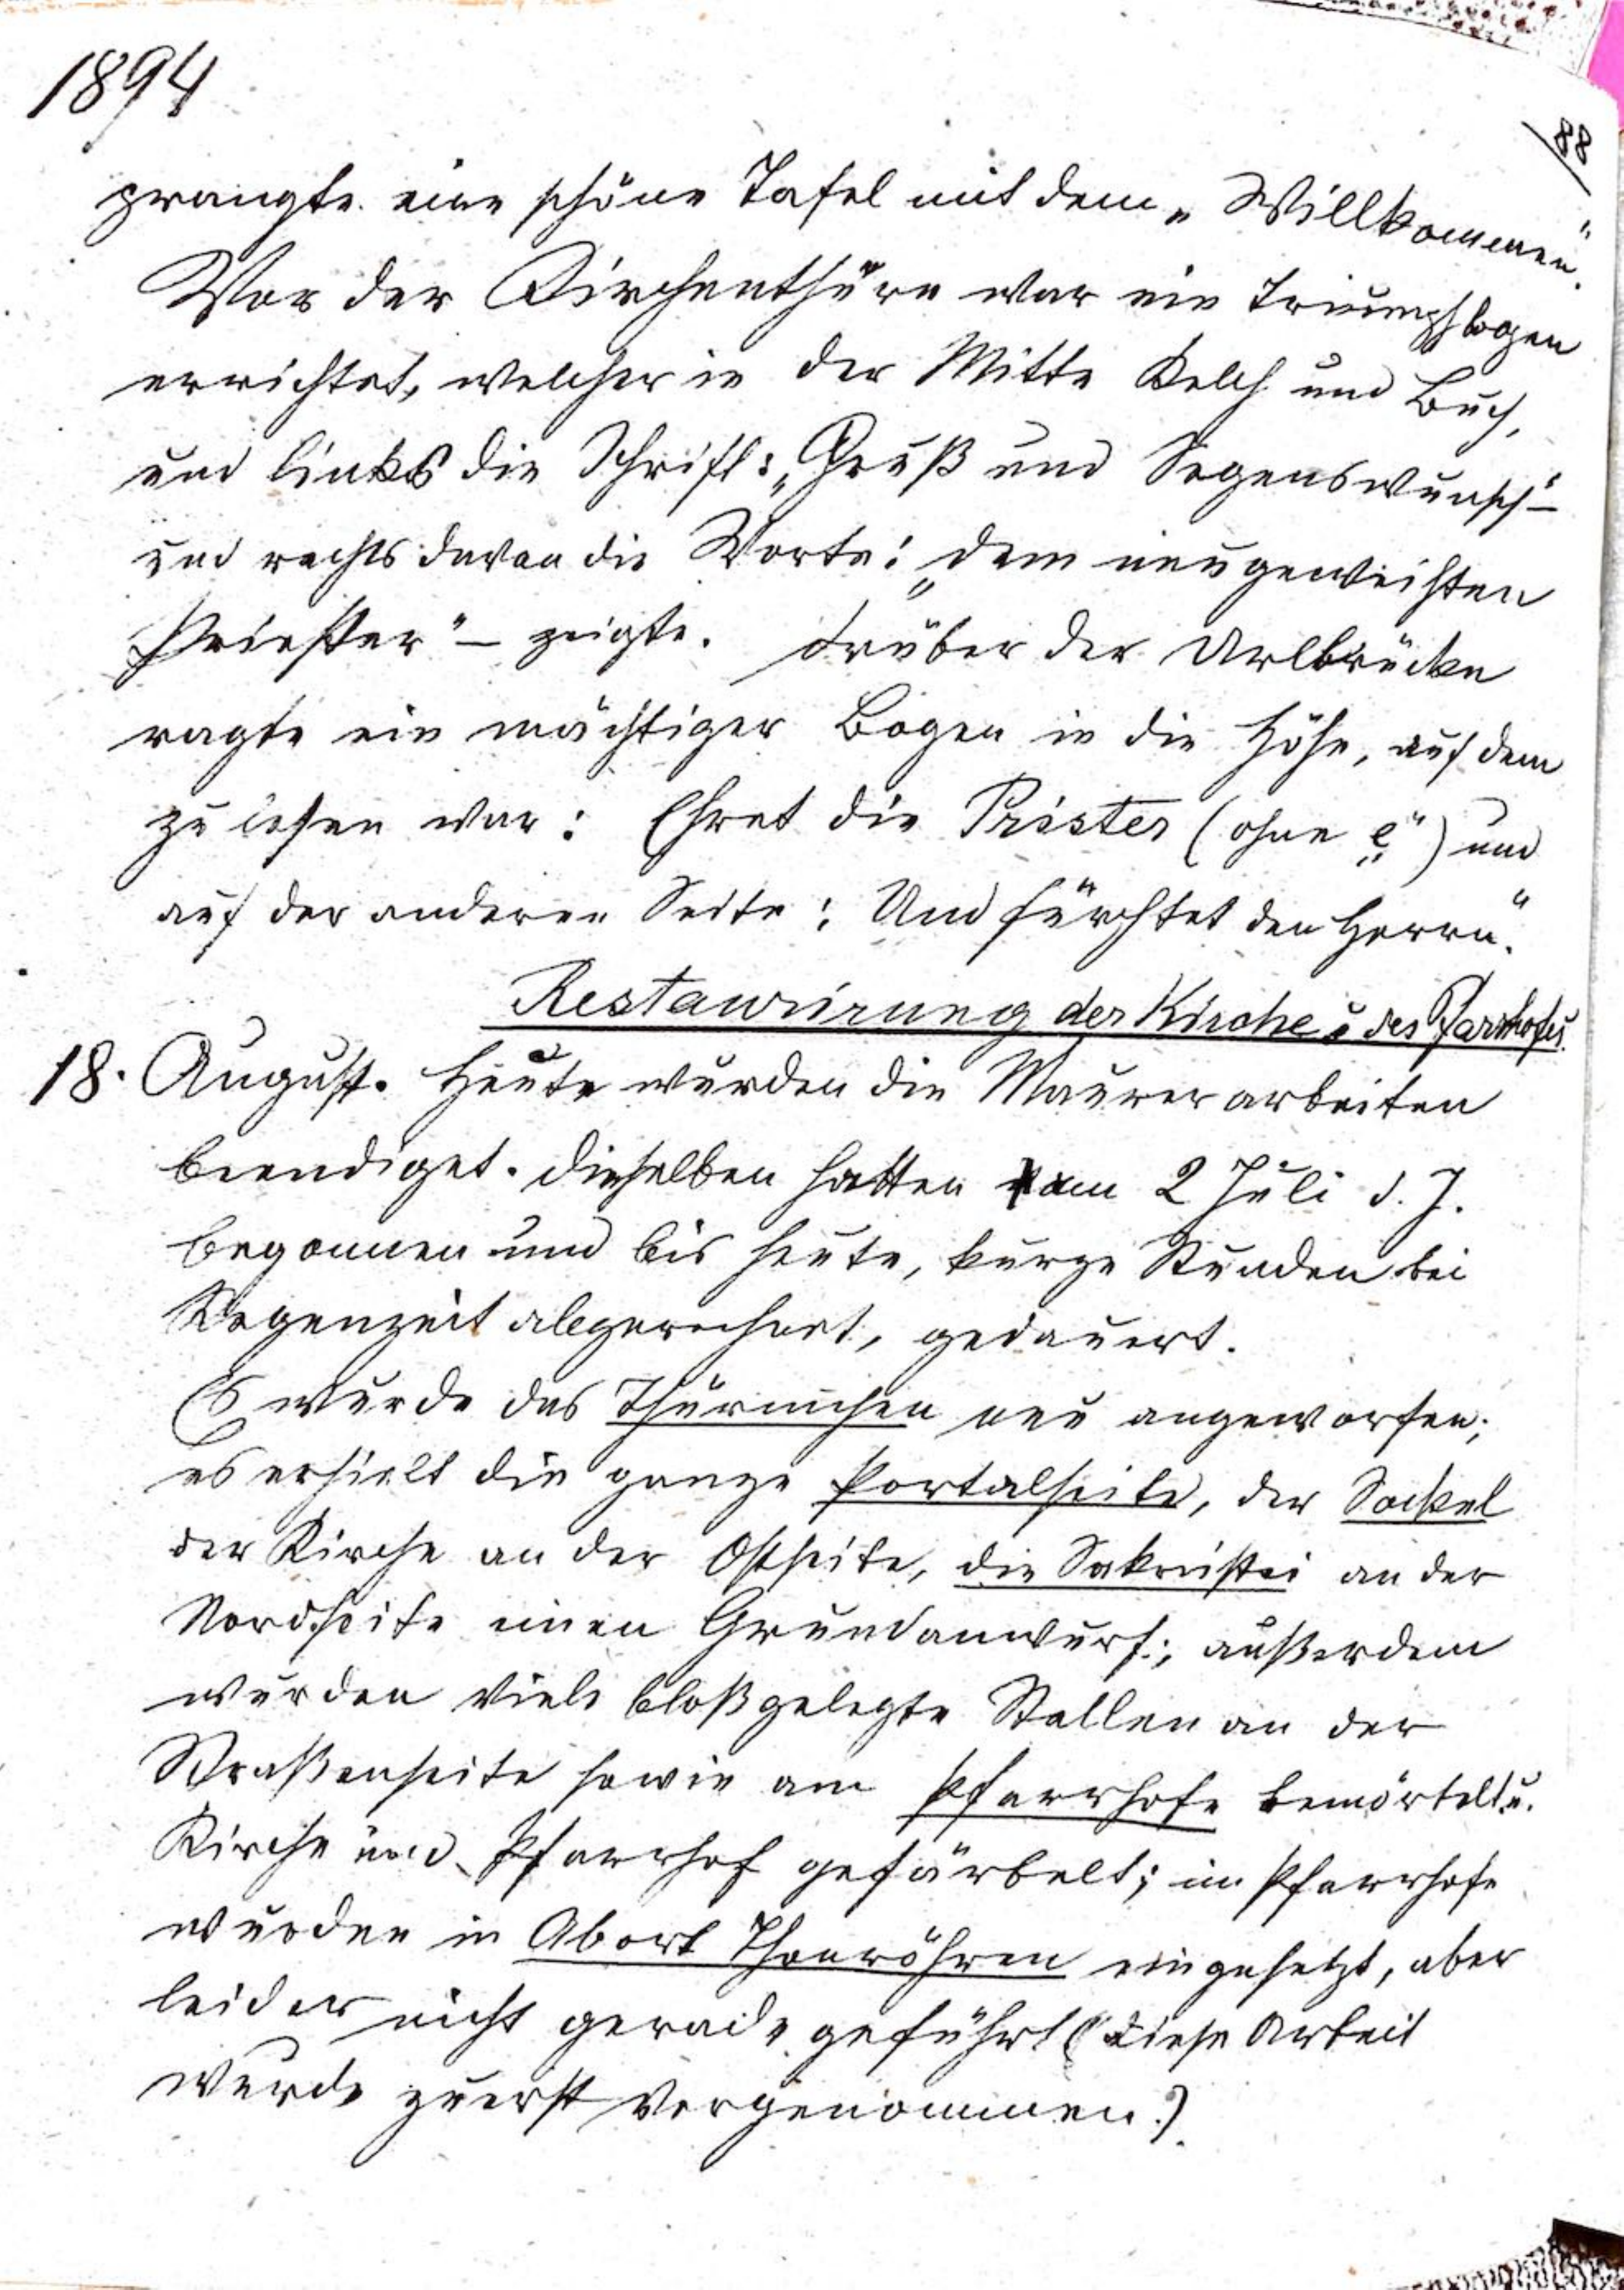 1894
88
prangte eine schöne Tafel mit dem „Willkommen".
Vor der Kirchenthüre war ein Triumphbogen
errichtet, welcher in der Mitte Kelch und Buch,
und links die Schrift: „Gruß und Segenswunsch" –
und rechts davon die Worte: „dem neugeweihten
Priester" – zeigte. Drüber der Arlbrücke
ragte ein mächtiger Bogen in die Höhe, auf dem
zu lesen war: Ehret die Prister (ohne „e") und
auf der anderen Seite: Und fürchtet den Herrn".
Restaurirung der Kirche u des Pfarrhofes.
18. August. Heute wurden die Maurerarbeiten
beendiget. Dieselben hatten am 2 Juli d. J.
begonnen und bis heute, kurze Stunden bei
Regenzeit abgerechnet, gedauert.
Es wurde das Thürmchen neu angeworfen;
es erhielt die ganze Portalseite, der Sockel
der Kirche an der Ostseite, die Sakristei an der
Nordseite einen Grundanwurf; außerdem
wurden viele bloßgelegte Stellen an der
Straßenseite sowie am Pfarrhofe bemörtelt u.
Kirche und Pfarrhof gefärbelt; im Pfarrhofe
wurden in Abort Thonröhren eingesetzt, aber
leider nicht gerade geführt (Diese Arbeit
wurde zuerst vorgenommen.)